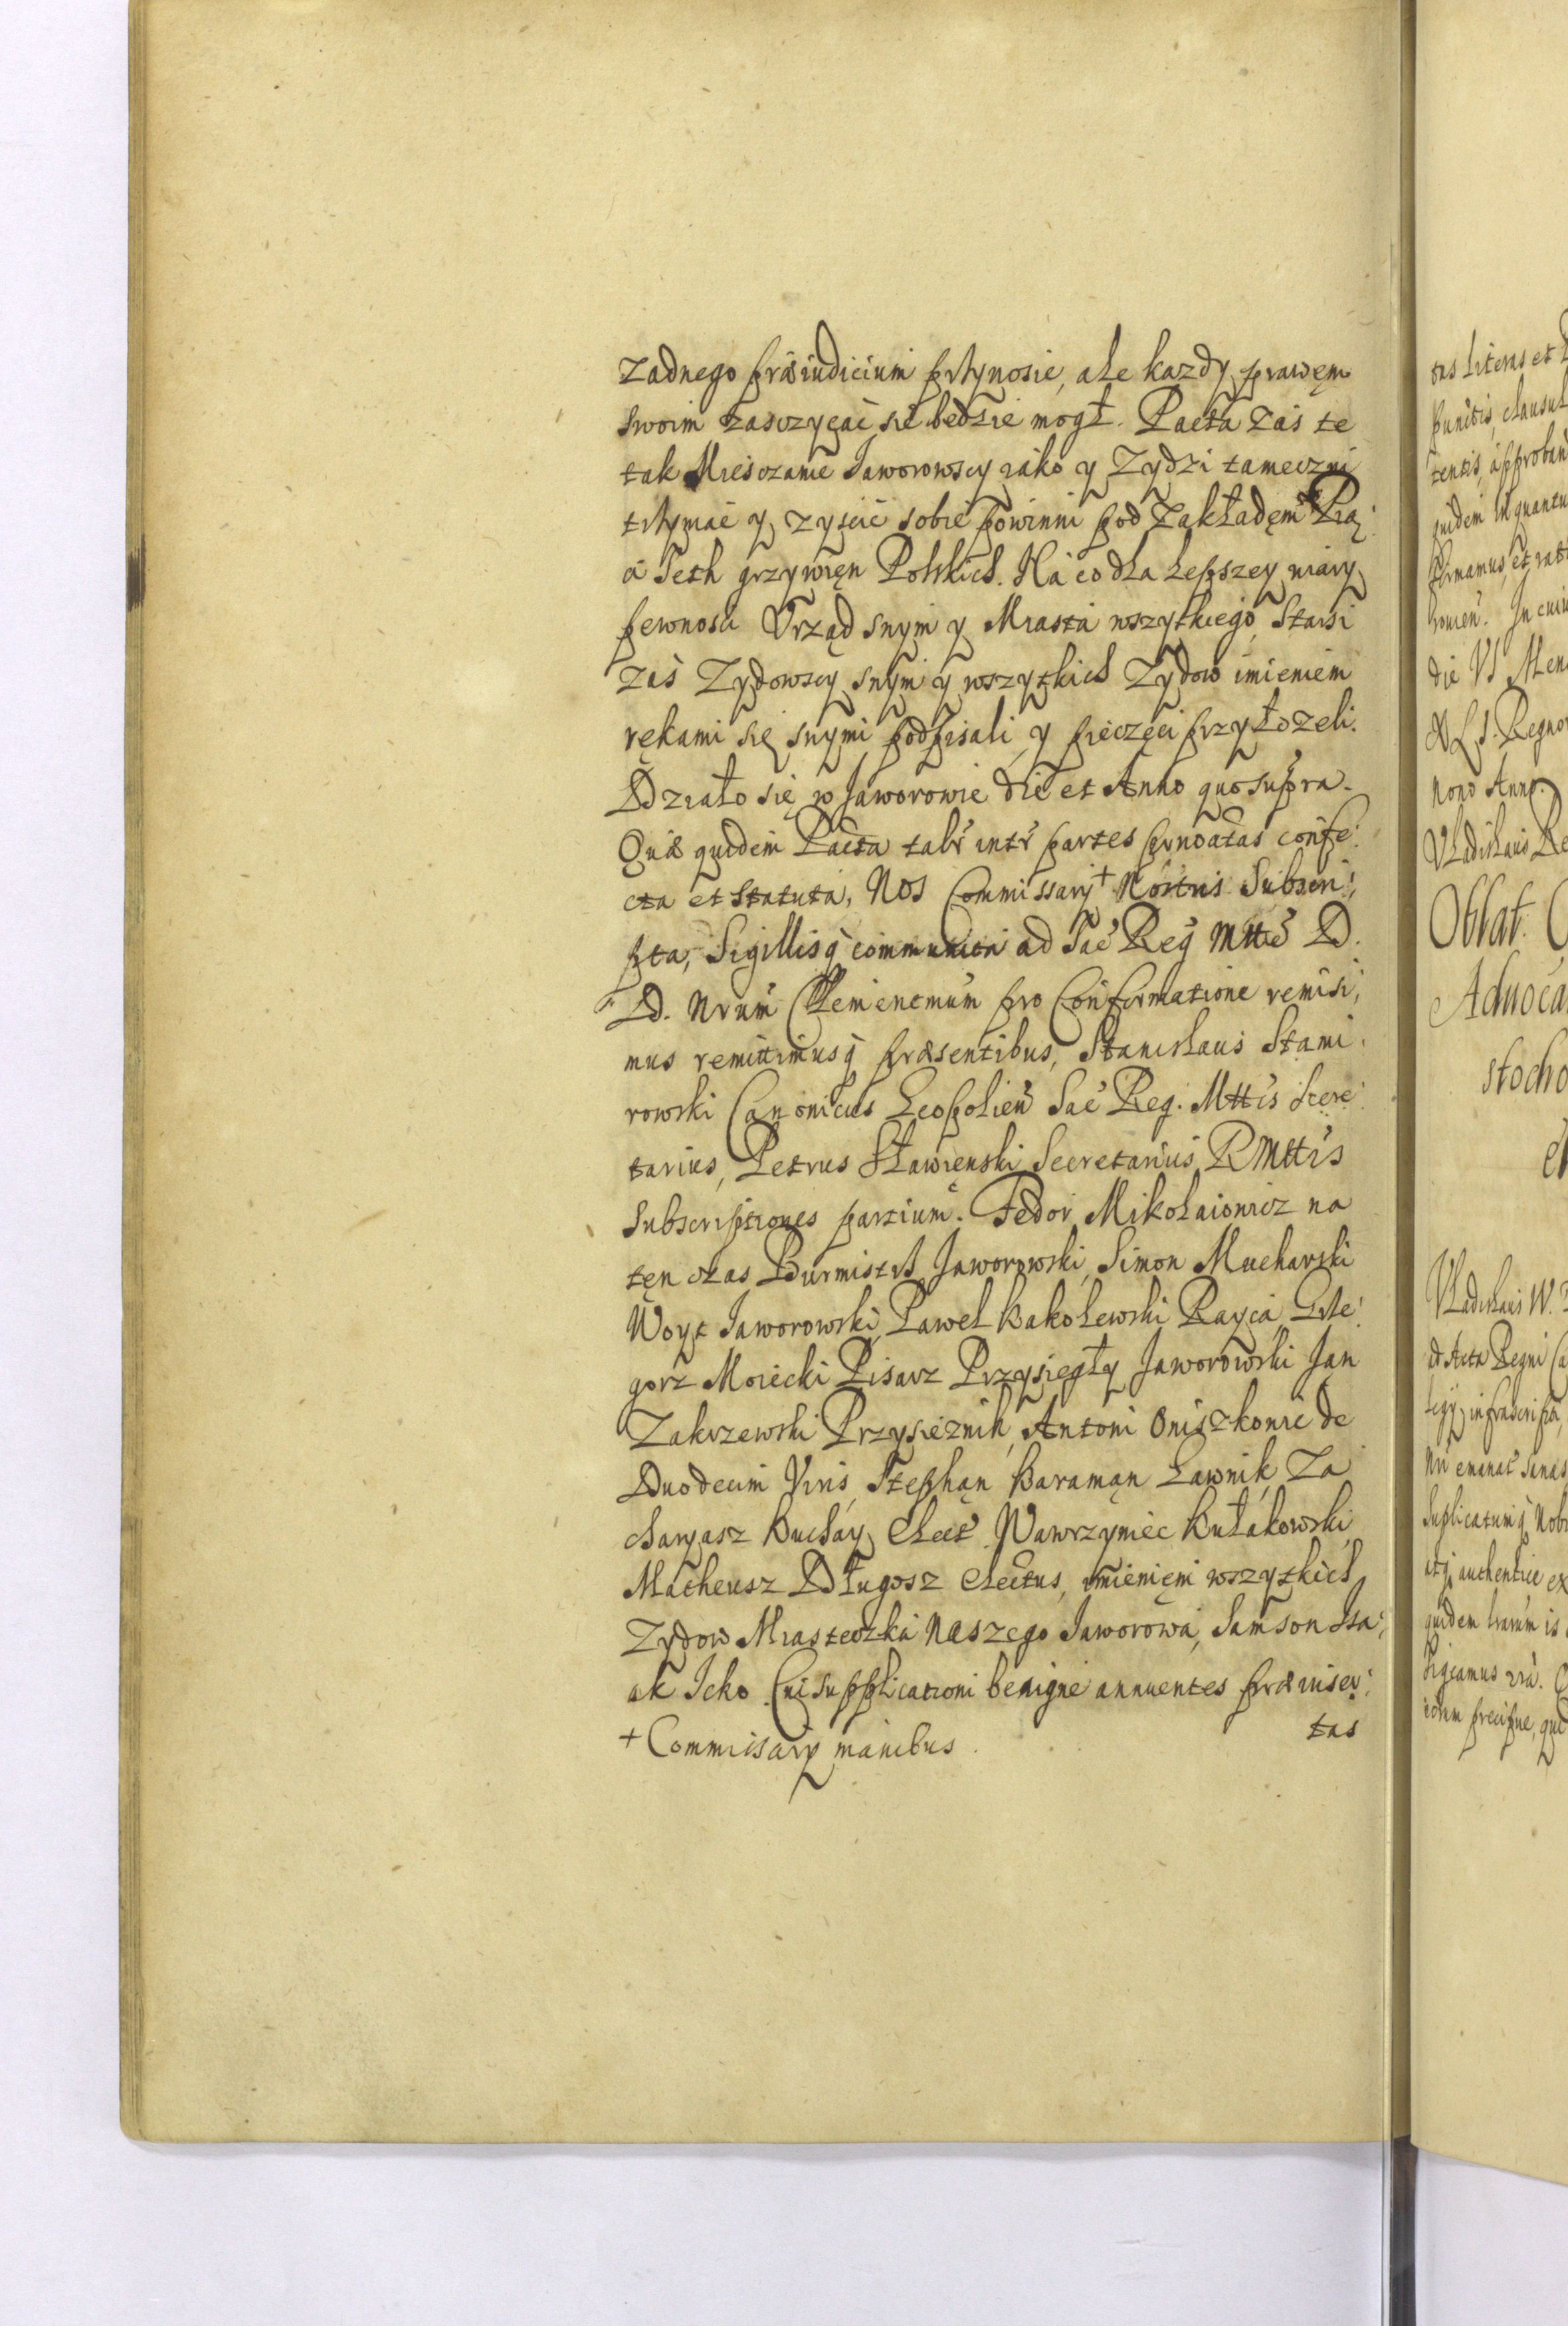 zadnego præiudicium prżynosić, ale kazdy prawęm
swoim zasczycać się będzie mogł. Pacta zaś te
tak Miesczanie Jaworowscy iáko y Zydzi tameczni
trżymać y zyścić sobie powinni pod Zakładęm Pią:
ci Seth grzywięn Polskich. Ná co dla lepszey wiary
pewnosci Vrząd snym y Miasta wszytkiego, Starsi
zaś Zydowscy snym y wszytkich Zydow imieniem
rękami się snymi podpisali y pieczęci przyłozeli.
Działo się w Jaworowie die et Anno quo supra.
Quæ quidem Pacta talr intr partes prnoatas confe:
cta et statuta, Nos Commissarij + Nostris Subscri:
pta, Sigillisq communita ad Sac Reg Mtte D.
D. Nrum Clementmum pro Confirmatione remisi:
mus remittimusq præsentibus, Stanislaus Stami:
rowski Canonicus Leopolien Sac Reg. Mttis Secre:
tarius, Petrus Sławięnski Secretarius RMttis
Subscriptiones partium. Fedor Mikołaiowicz na
tęn czas Burmistrż Jaworowski, Simon Mucharski
Woyt Jaworowski, Paweł Bakolewski Rayca, Grże:
gorz Moiecki Pisarz Przysięgły Jaworowski Jan
Zakrzewski Przysięznik, Antoni Oniszkowic de
Duodecim Viris, Stephan Baraman Ławnik, Za
charyasz Buchay Elect Wawrzyniec Bułakowski,
Matheusz Długosz electus, imienięm wszytkich
Zydow Miasteczka Naszego Jaworowa, Samson Isa:
ak Icko. Cui supplicationi benigne annuentes præinser:
tas
+ Commissarij manibus.
tas Literas et
punctis, clausul
tentis, approban
quidem inquantu
firmamus, et rati
In cuiu
die VI Men
Regno
Nono Anno.
Vladislaus Re
Oblat.
Aduoca
stocho
Vladislaus W.
ad Acta Regni Ca
infrascripta,
emanat
suplicatumq Nobi
authentice ex
quidem